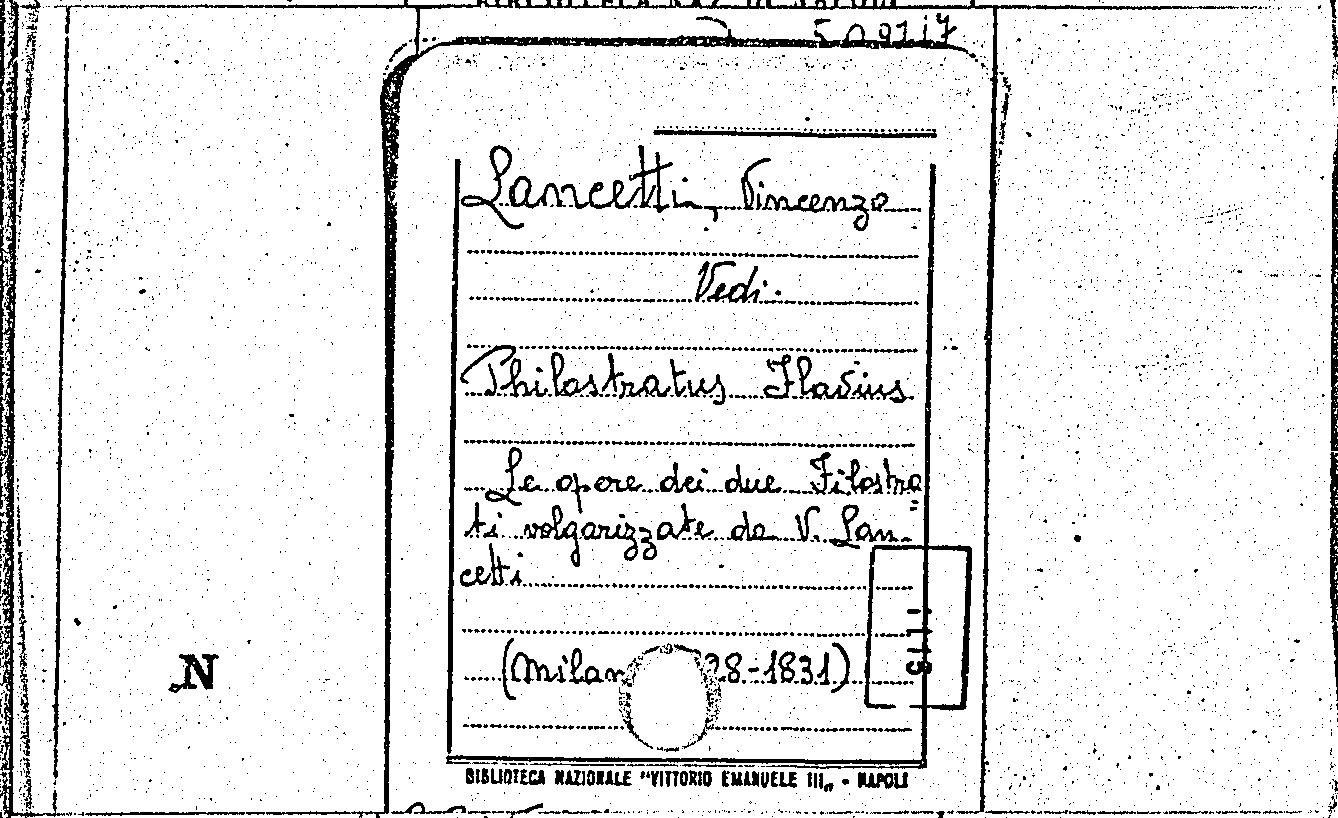 509117
Lancetti, Vincenzo
Vedi.
Philostratus Flavius
Le opere dei due Filostra=
ti volgarizzate da V. Lan-
cetti
(Milan 28-1831)
N
BIBLIOTECA NAZIONALE "VITTORIO EMANUELE III„ - NAPOLI